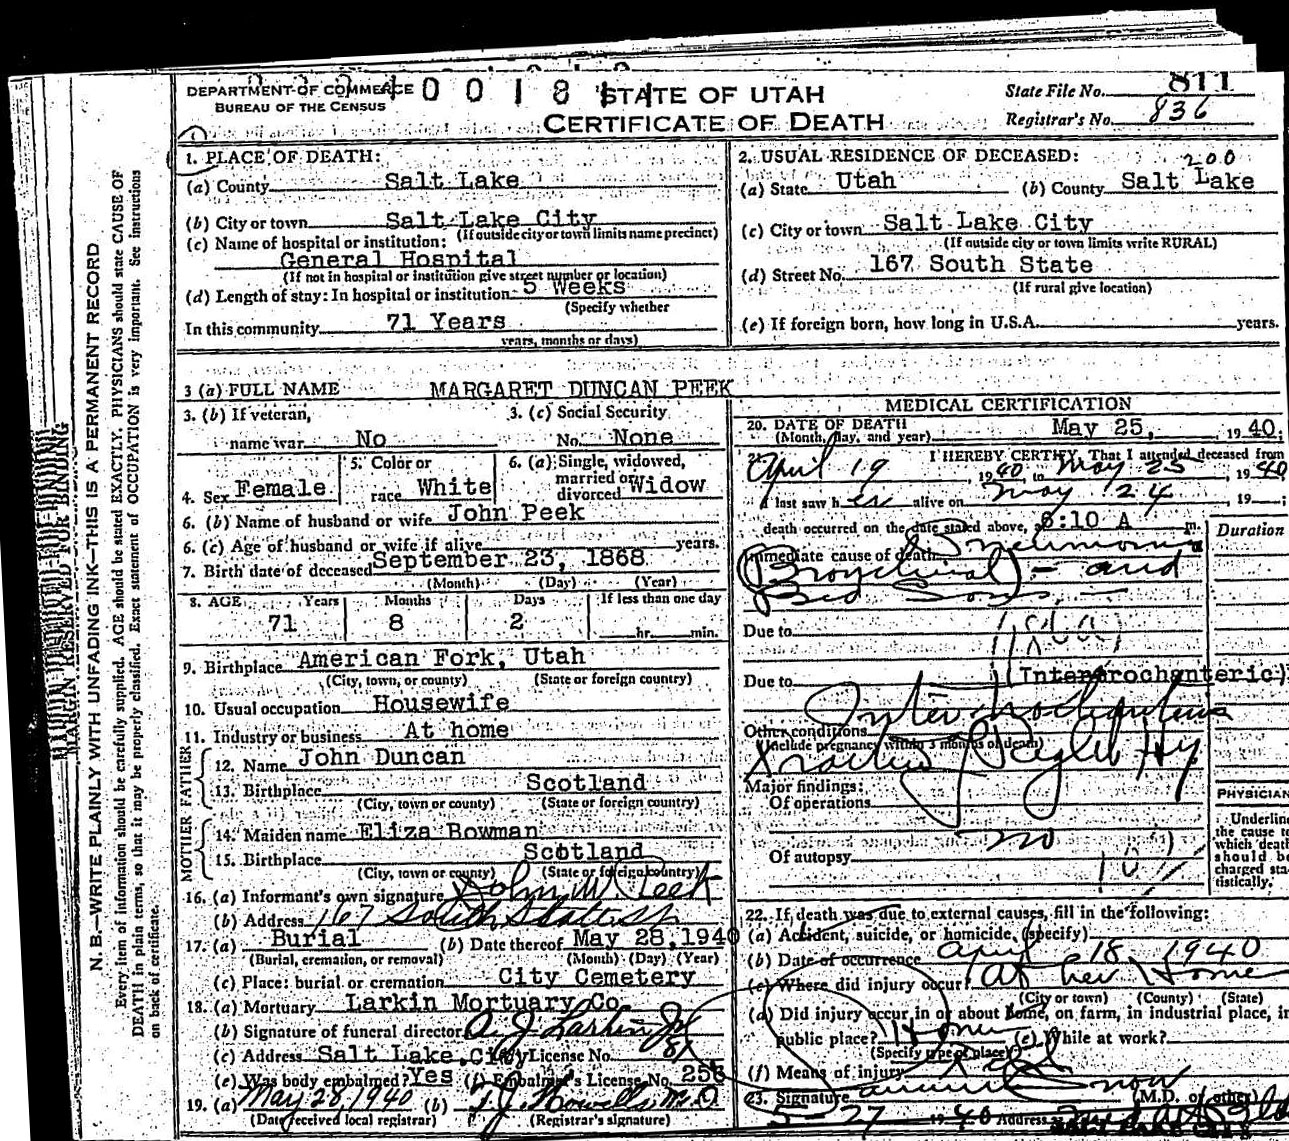 DEPARTMENT OF COMMERCE
BUREAU OF THE CENSUS
STATE OF UTAH
CERTIFICATE OF DEATH
State File No. 811
Registrar's No. 836
MARGIN RESERVED FOR BINDING
N. B.—WRITE PLAINLY WITH UNFADING INK—THIS IS A PERMANENT RECORD
Every item of information should be carefully supplied. AGE should be stated EXACTLY. PHYSICIANS should state CAUSE OF
DEATH in plain terms, so that it may be properly classified. Exact statement of OCCUPATION is very important. See instructions
on back of certificate.
1. PLACE OF DEATH:
(a) County Salt Lake
(b) City or town Salt Lake City
(If outside city or town limits name precinct)
(c) Name of hospital or institution:
General Hospital
(If not in hospital or institution give street number or location)
(d) Length of stay: In hospital or institution 5 Weeks
(Specify whether
In this community 71 Years
years, months or days)
2. USUAL RESIDENCE OF DECEASED: 200
(a) State Utah (b) County Salt Lake
(c) City or town Salt Lake City
(If outside city or town limits write RURAL)
(d) Street No. 167 South State
(If rural give location)
(e) If foreign born, how long in U.S.A. years.
3 (a) FULL NAME MARGARET DUNCAN PEEK
3. (b) If veteran, 3. (c) Social Security
name war No No. None
4. Sex Female 5. Color or race White 6. (a) Single, widowed, married or divorced Widow
6. (b) Name of husband or wife John Peek
6. (c) Age of husband or wife if alive years.
7. Birth date of deceased September 23, 1868
(Month) (Day) (Year)
8. AGE Years Months Days If less than one day
71 8 2 hr. min.
9. Birthplace American Fork, Utah
(City, town, or county) (State or foreign country)
10. Usual occupation Housewife
11. Industry or business At home
FATHER
12. Name John Duncan
13. Birthplace Scotland
(City, town or county) (State or foreign country)
MOTHER
14. Maiden name Eliza Bowman
15. Birthplace Scotland
(City, town or county) (State or foreign country)
16. (a) Informant's own signature John W. Peek
(b) Address 167 South State St
17. (a) Burial (b) Date thereof May 28, 1940
(Burial, cremation, or removal) (Month) (Day) (Year)
(c) Place: burial or cremation City Cemetery
18. (a) Mortuary Larkin Mortuary Co.
(b) Signature of funeral director A. J. Larkin Jr
(c) Address Salt Lake City License No. 81
(e) Was body embalmed? Yes (f) Embalmer's License No. 256
19. (a) May 28, 1940 (b) T. J. Howells M.D.
(Date received local registrar) (Registrar's signature)
MEDICAL CERTIFICATION
20. DATE OF DEATH
(Month, day, and year) May 25, 1940;
I HEREBY CERTIFY, That I attended deceased from
April 19, 1940, to May 25, 1940
I last saw her alive on May 24 19 ;
death occurred on the date stated above, at 6:10 A m.
Duration
Immediate cause of death Pneumonia
(Bronchial) - and
Bed Sores
Due to
Due to (Intertrochanteric)
Intertrochanteric
Other conditions
(Include pregnancy within 3 months of death)
Fracture Right Hip
Major findings:
Of operations
no
Of autopsy
PHYSICIAN
Underline
the cause to
which death
should be
charged sta-
tistically.
22. If death was due to external causes, fill in the following:
(a) Accident, suicide, or homicide (specify)
(b) Date of occurrence April 18 1940
(c) Where did injury occur? At her Home
(City or town) (County) (State)
(d) Did injury occur in or about home, on farm, in industrial place, in
public place? Home (e) While at work?
(Specify type of place)
(f) Means of injury Fell
23. Signature Snow
(M.D. or other)
5-27 1940 Address